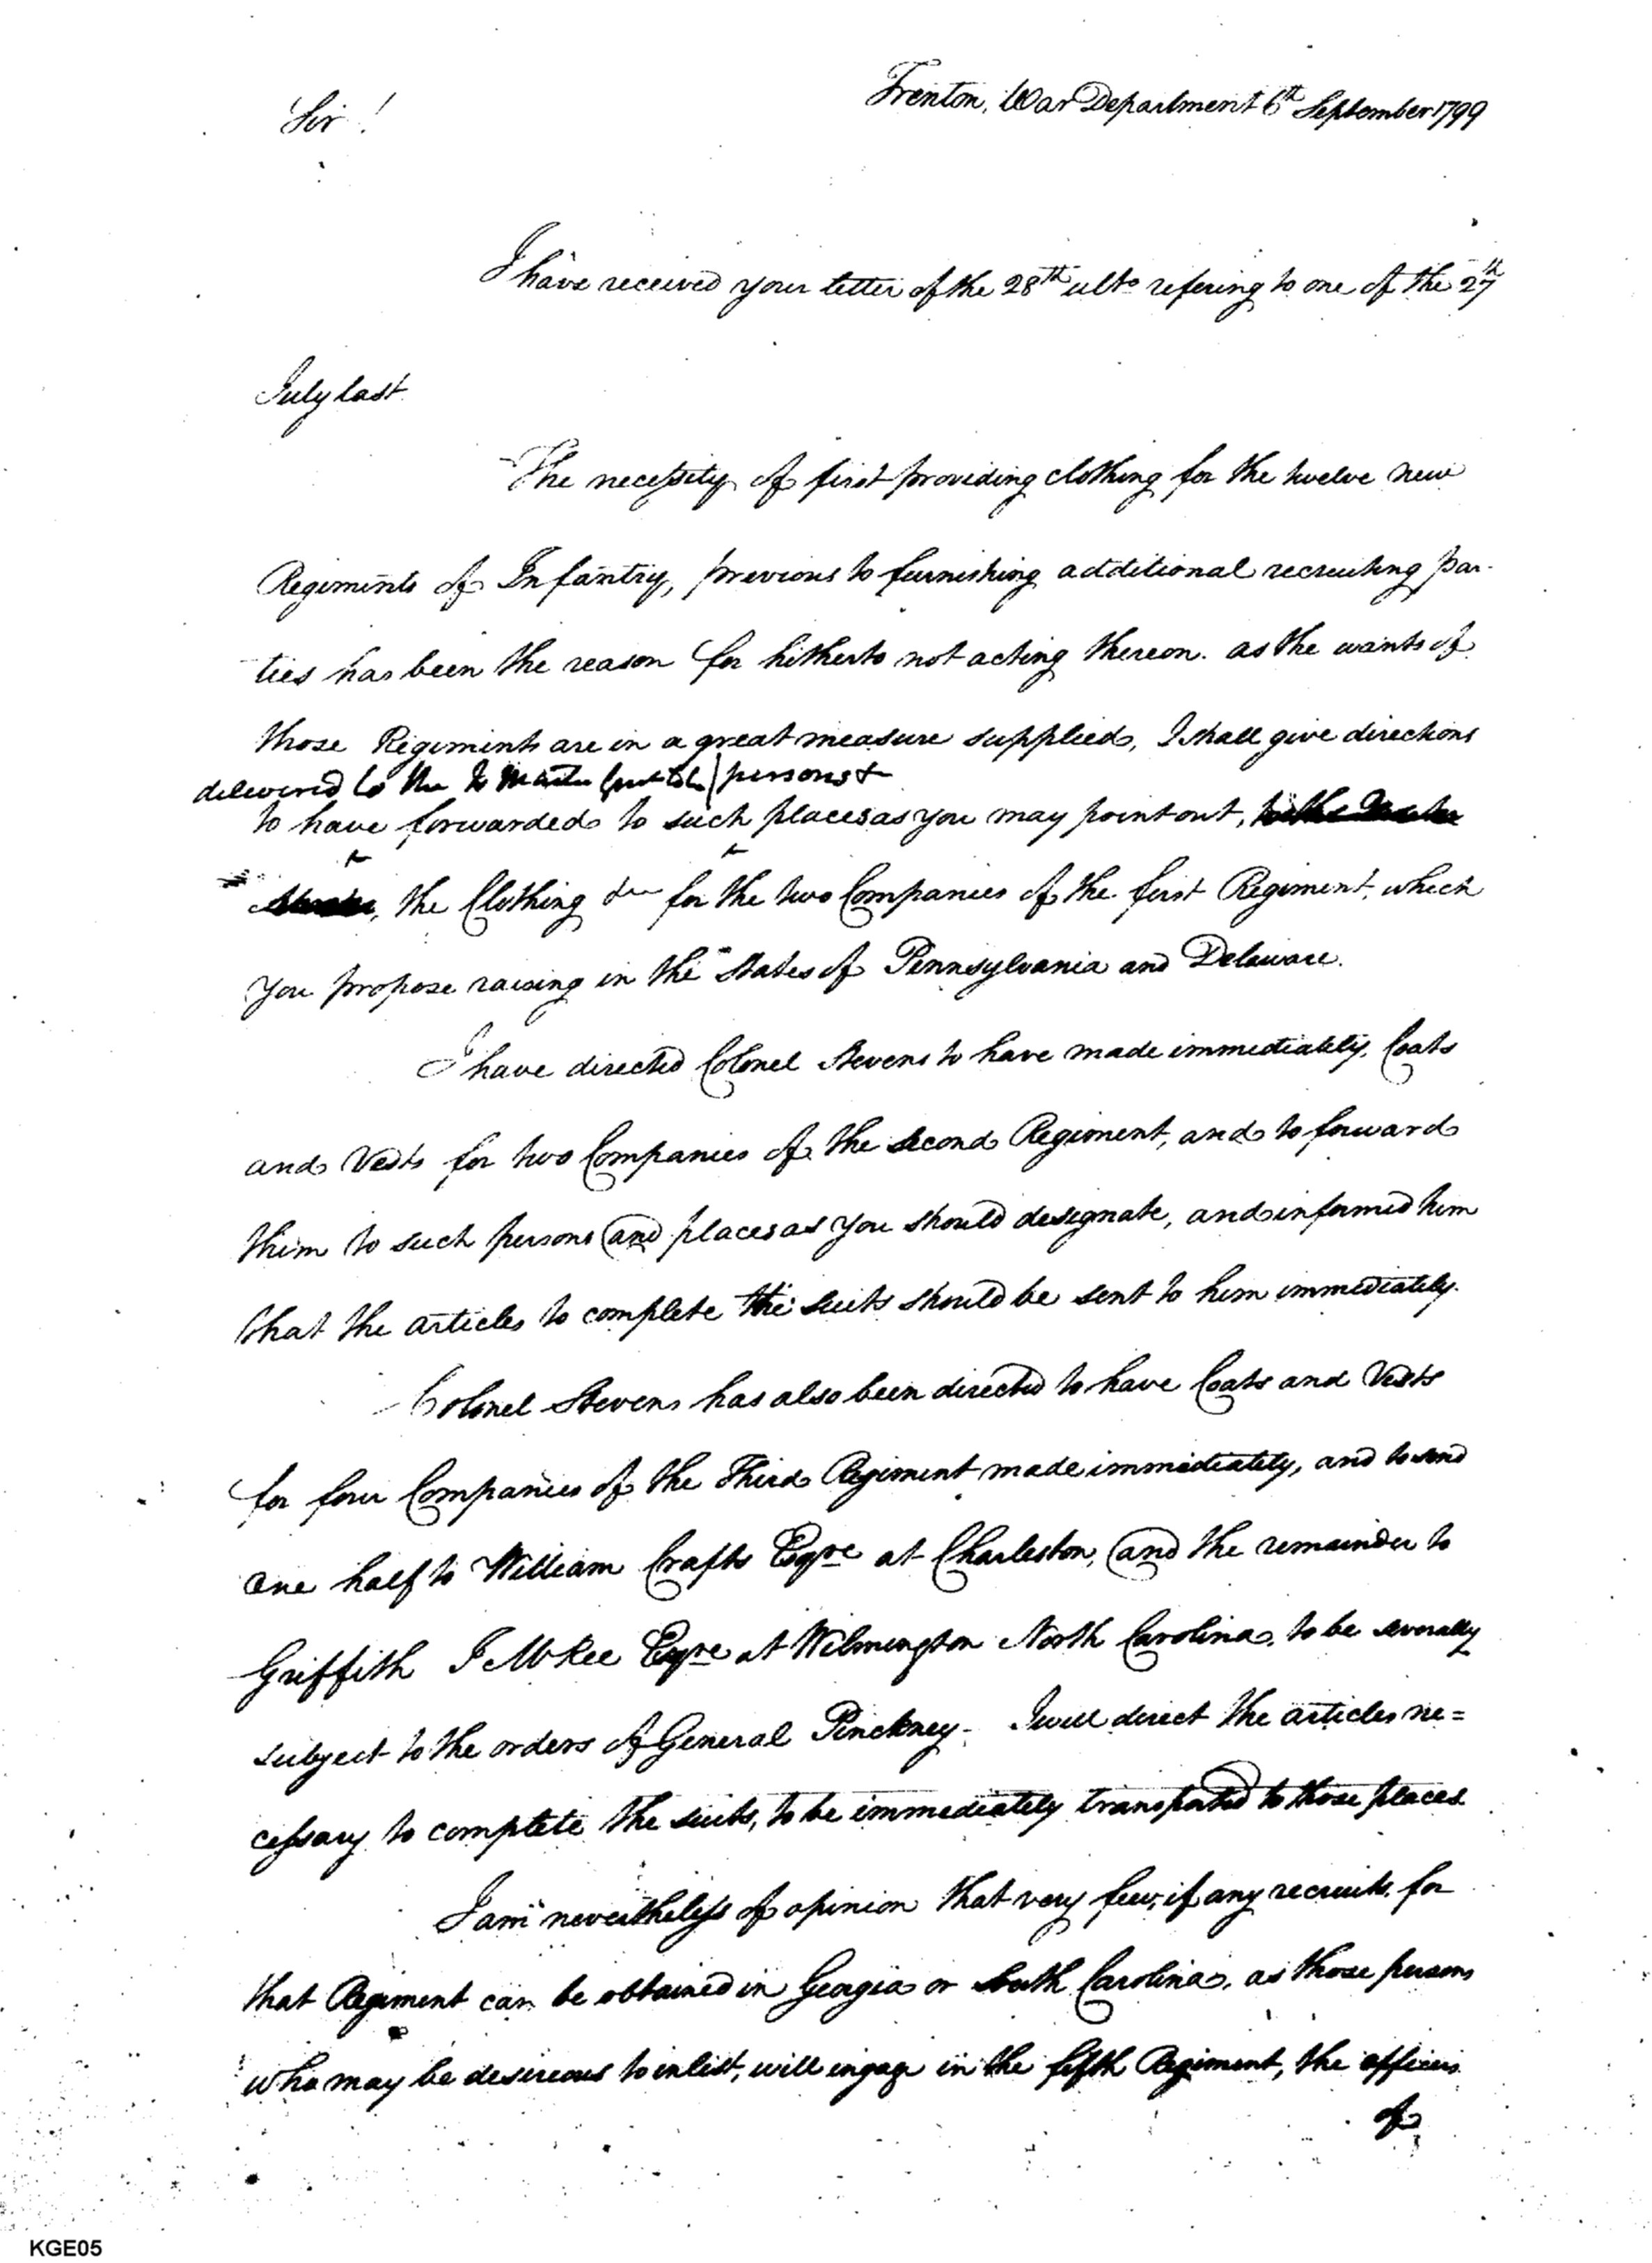 Trenton, War Department 6th September 1799
Sir!
I have received your letter of the 28th ulto refering to one of the 27th
July last.
The necessity of first providing clothing for the twelve new
Regiments of Infantry, previous to furnishing additional recruiting par-
ties has been the reason for hitherto not acting thereon. as the wants of
those Regiments are in a great measure supplied, I shall give directions
delivered to the persons &
to have forwarded to such places as you may point out,
, the Clothing &c for the two Companies of the first Regiment, which
you propose raising in the States of Pennsylvania and Delaware.
I have directed Colonel Stevens to have made immediately, Coats
and Vests for two Companies of the Second Regiment, and to forward
them to such persons and places as you should designate, and informed him
that the articles to complete the suits should be sent to him immediately.
Colonel Stevens has also been directed to have Coats and Vests
for four Companies of the Third Regiment made immediately, and to send
one half to William Crafts Esqre at Charleston, and the remainder to
Griffith J McRee Esqre at Wilmington North Carolina, to be severally
subject to the orders of General Pinckney- I will direct the articles ne=
cessary to complete the suits, to be immediately transported to those places
I am nevertheless of opinion that very few, if any recruits for
that Regiment can be obtained in Georgia or South Carolina, as those persons
who may be desireous to inlist, will engage in the fifth Regiment, the officers
of
KGE05